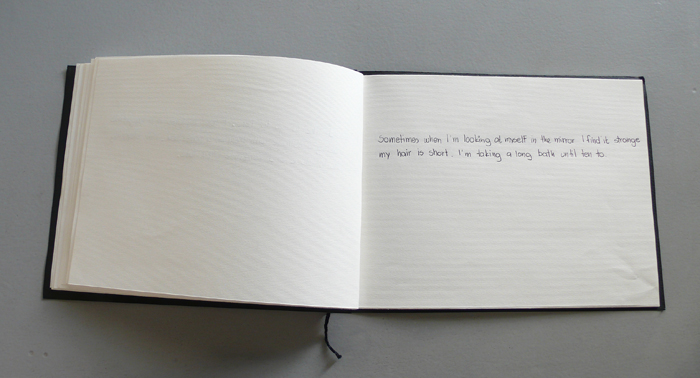 Sometimes when I'm looking at myself in the mirror I find it strange
my hair is short. I'm taking a long bath until ten to.